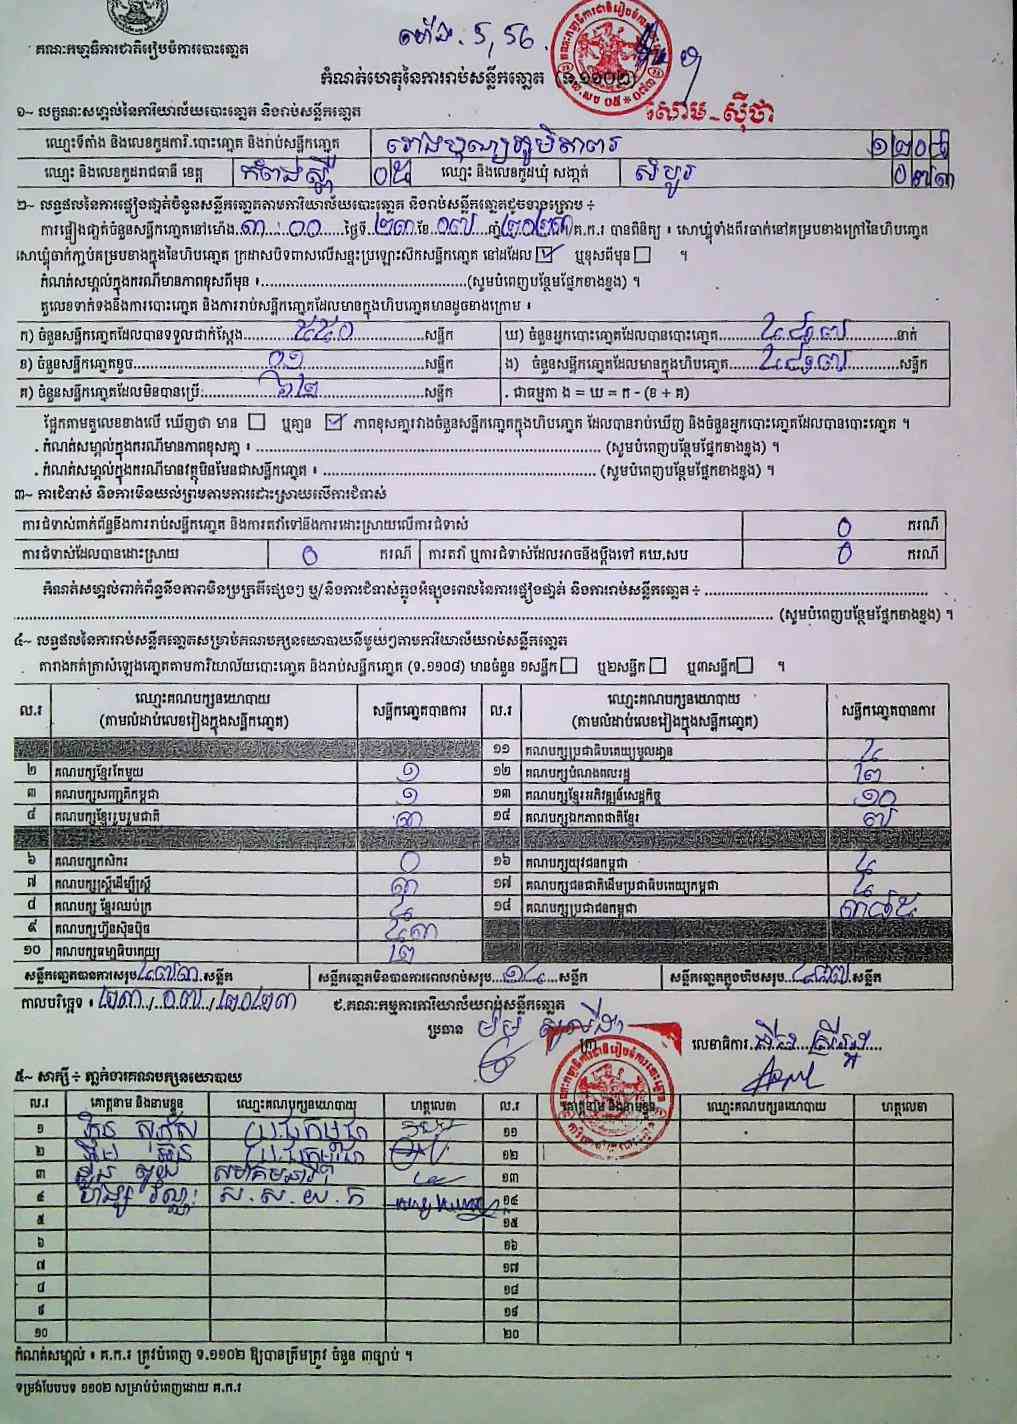 គណៈកម្មាធិការជាតិរៀបចំការបោះឆ្នោត
ម៉ោង . 5, 56
កំណត់ហេតុនៃការរាប់សន្លឹកឆ្នោត (ទ.១១០២)
សោម - ស៊ីថា
១~ លក្ខណៈសម្គាល់នៃការិយាល័យបោះឆ្នោត និងរាប់សន្លឹកឆ្នោត
ឈ្មោះទីតាំង និងលេខកូដការិ.បោះឆ្នោត និងរាប់សន្លឹកឆ្នោត រោងបុណ្យភូមិ
ឈ្មោះ និងលេខកូដរាជធានី ខេត្ត កំពង់ស្ពឺ ០៥ ឈ្មោះ និងលេខកូដឃុំ សង្កាត់ សំបូរ ០៧៣
២~ លទ្ធផលនៃការផ្ទៀងផ្ទាត់ចំនួនសន្លឹកឆ្នោតតាមការិយាល័យបោះឆ្នោត និងរាប់សន្លឹកឆ្នោតដូចខាងក្រោម ÷
ការផ្ទៀងផ្ទាត់ចំនួនសន្លឹកឆ្នោតនៅម៉ោង ៣ : ០០ ថ្ងៃទី ២៣ ខែ ០៧ ឆ្នាំ ២០២៣ គ.ក.រ បានពិនិត្យ ៖ សោឃ្លុំទាំងពីរចាក់នៅគម្របខាងក្រៅនៃហិបឆ្នោត
សោឃ្លុំចាក់ភ្ជាប់គម្របខាងក្នុងនៃហិបឆ្នោត ក្រដាសបិទពាសលើសន្ទះប្រឡោះស៊កសន្លឹកឆ្នោត នៅដដែល ☑ ឬខុសពីមុន ☐ ។
កំណត់សម្គាល់ក្នុងករណីមានភាពខុសពីមុន ៖ (សូមបំពេញបន្ថែមផ្នែកខាងខ្នង) ។
តួលេខទាក់ទងនឹងការបោះឆ្នោត និងការរាប់សន្លឹកឆ្នោតដែលមានក្នុងហិបឆ្នោតមានដូចខាងក្រោម ៖
ក) ចំនួនសន្លឹកឆ្នោតដែលបានទទួលជាក់ស្តែង ៥៥០ សន្លឹក ឃ) ចំនួនអ្នកបោះឆ្នោតដែលបានបោះឆ្នោត ៤៨៧ នាក់
ខ) ចំនួនសន្លឹកឆ្នោតខូច ០១ សន្លឹក ង) ចំនួនសន្លឹកឆ្នោតដែលមានក្នុងហិបឆ្នោត ៤៨៧ សន្លឹក
គ) ចំនួនសន្លឹកឆ្នោតដែលមិនបានប្រើ: ៦២ សន្លឹក . ជាធម្មតា ង = ឃ = ក - (ខ + គ)
ផ្អែកតាមតួលេខខាងលើ ឃើញថា មាន ☐ ឬគ្មាន ☑ ភាពខុសគ្នារវាងចំនួនសន្លឹកឆ្នោតក្នុងហិបឆ្នោត ដែលបានរាប់ឃើញ និងចំនួនអ្នកបោះឆ្នោតដែលបានបោះឆ្នោត ។
. កំណត់សម្គាល់ក្នុងករណីមានភាពខុសគ្នា ៖ (សូមបំពេញបន្ថែមផ្នែកខាងខ្នង) ។
. កំណត់សម្គាល់ក្នុងករណីមានវត្ថុមិនមែនជាសន្លឹកឆ្នោត ៖ (សូមបំពេញបន្ថែមផ្នែកខាងខ្នង) ។
៣~ ការជំទាស់ និងការមិនយល់ព្រមតាមការដោះស្រាយលើការជំទាស់
ការជំទាស់ពាក់ព័ន្ធនឹងការរាប់សន្លឹកឆ្នោត និងការតវ៉ាទៅនឹងការដោះស្រាយលើការជំទាស់ ០ ករណី
ការជំទាស់ដែលបានដោះស្រាយ ០ ករណី ការតវ៉ា ឬការជំទាស់ដែលអាចនឹងប្តឹងទៅ គឃ.សប ០ ករណី
កំណត់សម្គាល់ពាក់ព័ន្ធនឹងភាពមិនប្រក្រតីផ្សេងៗ ឬ/និងការជំទាស់ក្នុងអំឡុងពេលនៃការផ្ទៀងផ្ទាត់ និងការរាប់សន្លឹកឆ្នោត ÷
(សូមបំពេញបន្ថែមផ្នែកខាងខ្នង) ។
៤~ លទ្ធផលនៃការរាប់សន្លឹកឆ្នោតសម្រាប់គណបក្សនយោបាយនីមួយៗតាមការិយាល័យរាប់សន្លឹកឆ្នោត
តារាងកត់ត្រាសំឡេងឆ្នោតតាមការិយាល័យបោះឆ្នោត និងរាប់សន្លឹកឆ្នោត (ទ.១១០៨) មានចំនួន ១សន្លឹក ☐ ឬ២សន្លឹក ☐ ឬ៣សន្លឹក ☐ ។
ល.រ ឈ្មោះគណបក្សនយោបាយ (តាមលំដាប់លេខរៀងក្នុងសន្លឹកឆ្នោត) សន្លឹកឆ្នោតបានការ ល.រ ឈ្មោះគណបក្សនយោបាយ (តាមលំដាប់លេខរៀងក្នុងសន្លឹកឆ្នោត) សន្លឹកឆ្នោតបានការ
១១ គណបក្សប្រជាធិបតេយ្យមូលដ្ឋាន ៤
២ គណបក្សខ្មែរតែមួយ ១ ១២ គណបក្សបំណងពលរដ្ឋ ២
៣ គណបក្សសញ្ជាតិកម្ពុជា ១ ១៣ គណបក្សខ្មែរអភិវឌ្ឍន៍សេដ្ឋកិច្ច ១០
៤ គណបក្សខ្មែររួបរួមជាតិ ៣ ១៤ គណបក្សឯកភាពជាតិខ្មែរ ៧
៦ គណបក្សកសិករ ០ ១៦ គណបក្សយុវជនកម្ពុជា ៤
៧ គណបក្សស្រ្តីដើម្បីស្រ្តី ៣ ១៧ គណបក្សជនជាតិដើមប្រជាធិបតេយ្យកម្ពុជា ៤
៨ គណបក្ស ខ្មែរឈប់ក្រ ៤ ១៨ គណបក្សប្រជាជនកម្ពុជា ៣៨៥
៩ គណបក្សហ៊្វុនស៊ិនប៉ិច ៤៣
១០ គណបក្សធម្មាធិបតេយ្យ ២
សន្លឹកឆ្នោតបានការសរុប ៤៧៣ សន្លឹក សន្លឹកឆ្នោតមិនបានការពេលរាប់សរុប ១៤ សន្លឹក សន្លឹកឆ្នោតក្នុងហិបសរុប ៤៨៧ សន្លឹក
កាលបរិច្ឆេទ ៖ ២៣ / ០៧ / ២០២៣ ជ.គណៈកម្មការការិយាល័យរាប់សន្លឹកឆ្នោត
ប្រធាន លេខាធិការ
៥~ សាក្សី ÷ ភ្នាក់ងារគណបក្សនយោបាយ
ល.រ គោត្តនាម និងនាមខ្លួន ឈ្មោះគណបក្សនយោបាយ ហត្ថលេខា ល.រ គោត្តនាម និងនាមខ្លួន ឈ្មោះគណបក្សនយោបាយ ហត្ថលេខា
១ ប្រជាជនកម្ពុជា ១១
២ ប្រជាជនកម្ពុជា ១២
៣ ១៣
៤ ស.ស.យ.ក ១៤
៥ ១៥
៦ ១៦
៧ ១៧
៨ ១៨
៩ ១៩
១០ ២០
កំណត់សម្គាល់ ៖ គ.ក.រ ត្រូវបំពេញ ទ.១១០២ ឱ្យបានត្រឹមត្រូវ ចំនួន ៣ច្បាប់ ។
ទម្រង់បែបបទ ១១០២ សម្រាប់បំពេញដោយ គ.ក.រ